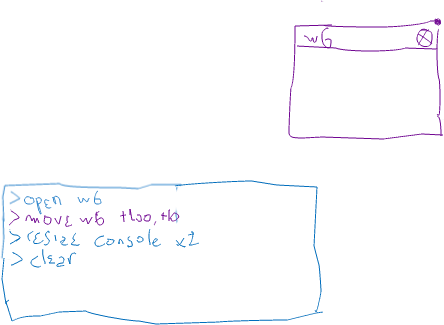 w6
>open w6
>move w6 +100,+10
>resize console x2
>clear